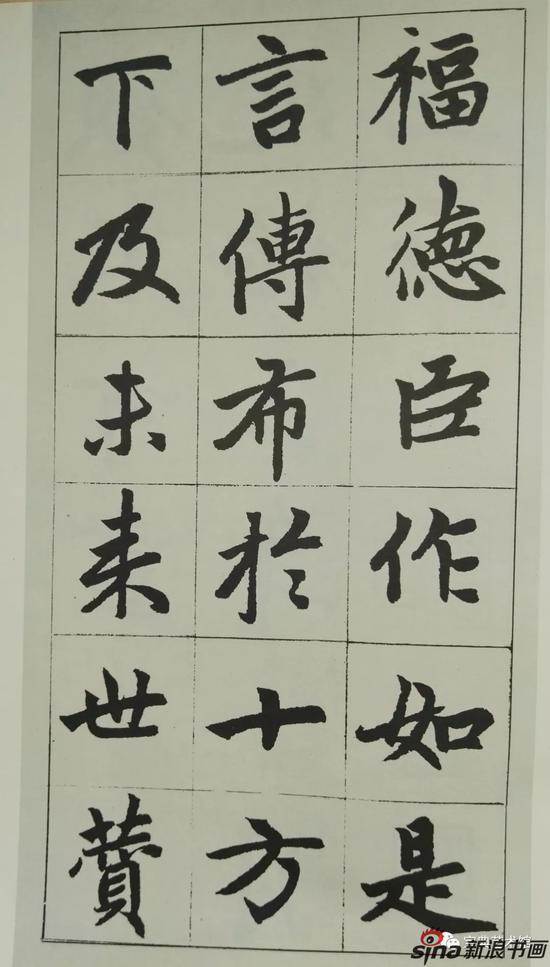 福德臣作如是
言傳布於十方
下及未来世賛
sina新浪书画